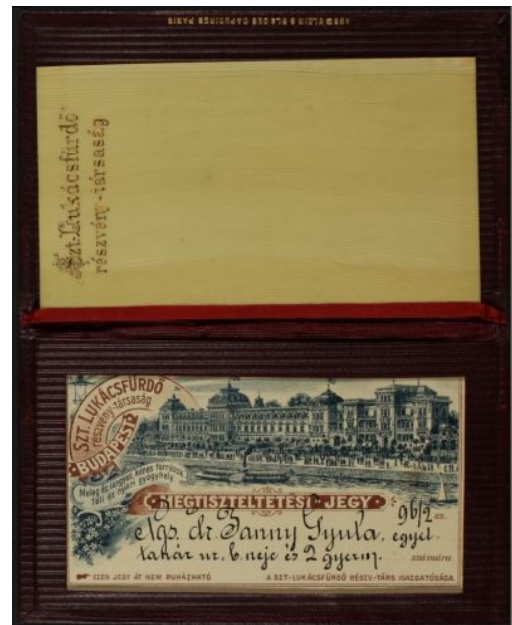 AUG. KLEIN 6 BLD DES CAPUCINES PARIS
Szt-Lukácsfürdő
részvény-társaság
SZT. LUKÁCSFÜRDŐ
részvény-társaság
BUDAPEST
Meleg és iszapos kénes források
Téli és nyári gyógyhely
MEGTISZTELTETÉSI JEGY
96/2 sz.
Ngs. dr. Fanny Gyula, egyet.
tanár ur, b. neje és 2 gyerm. számára.
EZEN JEGY ÁT NEM RUHÁZHATÓ
A SZT-LUKÁCSFÜRDŐ RÉSZV.-TÁRS. IGAZGATÓSÁGA